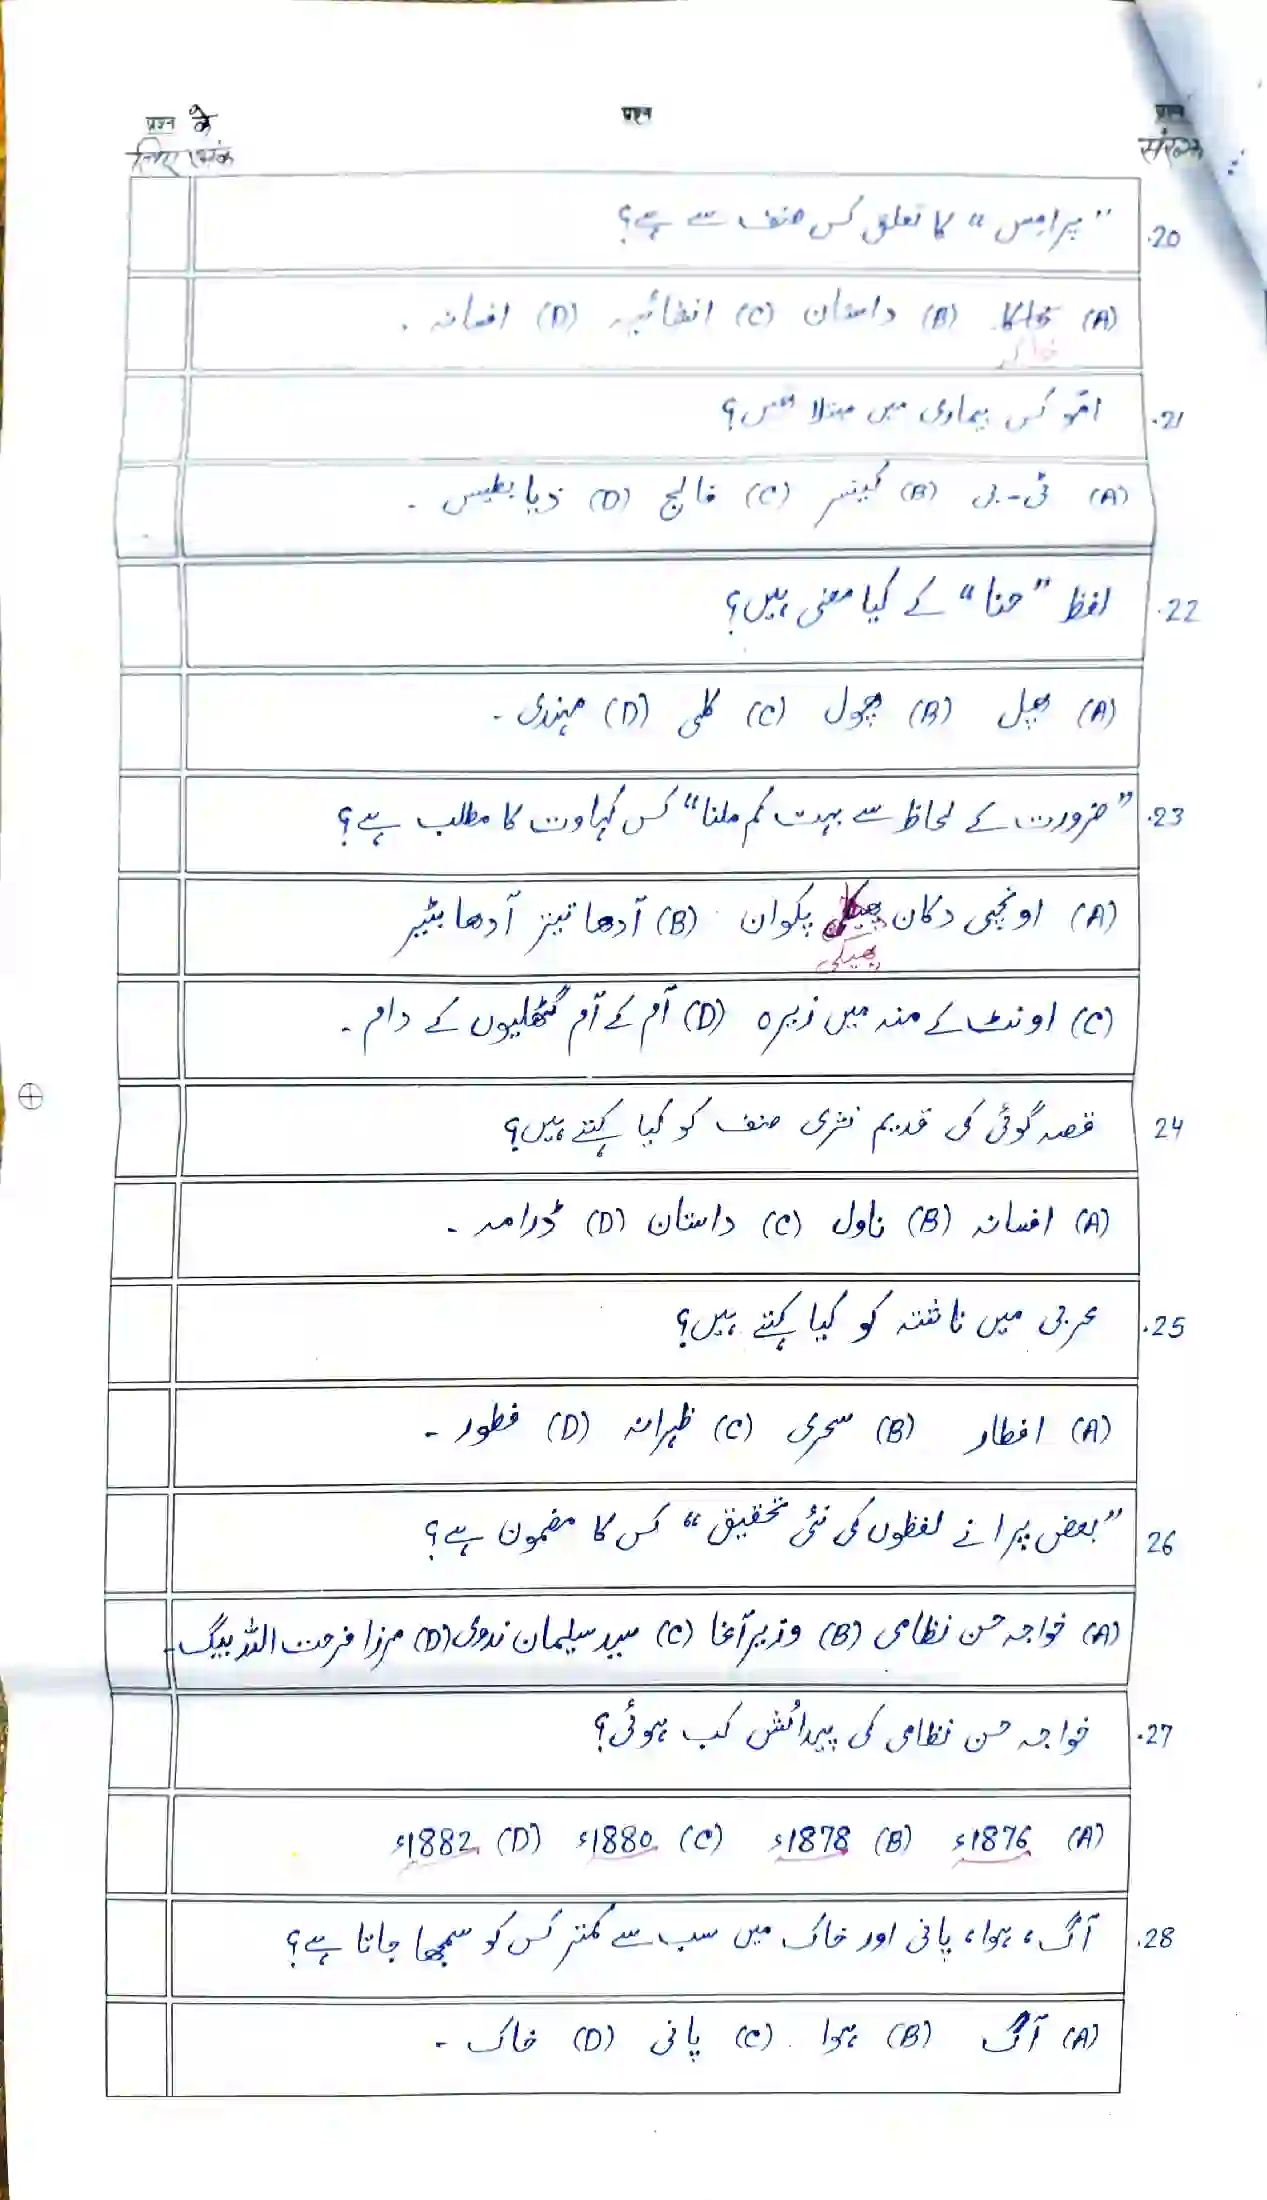 प्रश्न संख्या प्रश्न प्रश्न के लिए अंक
20. ”پرامس“ کا تعلق کس صنف سے ہے؟
(A) خاکا (B) داستان (C) انشائیہ (D) افسانہ ۔
خاکہ
21. امّو کس بیماری میں مبتلا تھیں؟
(A) ٹی-بی (B) کینسر (C) فالج (D) ذیابطیس ۔
22. لفظ ”حنا“ کے کیا معنی ہیں؟
(A) پھل (B) پھول (C) کلی (D) مہندی ۔
23. ”ضرورت کے لحاظ سے بہت کم ملنا“ کس کہاوت کا مطلب ہے؟
(A) اونچی دکان پکوان (B) آدھا تیتر آدھا بٹیر
پھیکی
(C) اونٹ کے منہ میں زیرہ (D) آم کے آم گٹھلیوں کے دام ۔
24 قصہ گوئی کی قدیم نثری صنف کو کیا کہتے ہیں؟
(A) افسانہ (B) ناول (C) داستان (D) ڈرامہ ۔
25. عربی میں ناشتہ کو کیا کہتے ہیں؟
(A) افطار (B) سحری (C) ظہرانہ (D) فطور ۔
26 ”بعض پرانے لفظوں کی نئی تحقیق“ کس کا مضمون ہے؟
(A) خواجہ حسن نظامی (B) وزیر آغا (C) سید سلیمان ندوی (D) مرزا فرحت اللہ بیگ ۔
27. خواجہ حسن نظامی کی پیدائش کب ہوئی؟
(A) 1876ء (B) 1878ء (C) 1880ء (D) 1882ء
28. آگ، ہوا، پانی اور خاک میں سب سے کمتر کس کو سمجھا جاتا ہے؟
(A) آگ (B) ہوا (C) پانی (D) خاک ۔